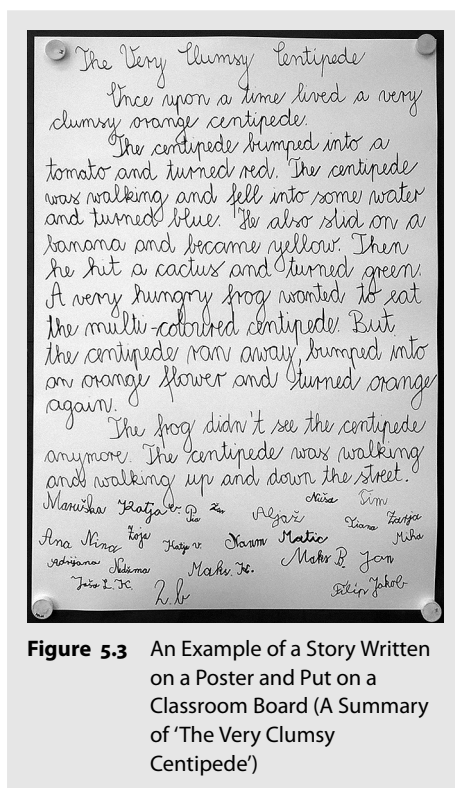 The Very Clumsy Centipede
Once upon a time lived a very
clumsy orange centipede.
The centipede bumped into a
tomato and turned red. The centipede
was walking and fell into some water
and turned blue. He also slid on a
banana and became yellow. Then
he hit a cactus and turned green.
A very hungry frog wanted to eat
the multi-coloured centipede. But
the centipede ran away, bumped into
an orange flower and turned orange
again.
The frog didn't see the centipede
anymore. The centipede was walking
and walking up and down the street.
Maruška Katja Pia Žan Aljaž Nuša Tim
Ana Nina Zoja Katja V. Naum Matic Tiana Zarja Miha
Adrijana Nedžma Maks K. Maks B. Jan
Jaša L. K. 2.b Filip Jakob
Figure 5.3 An Example of a Story Written
on a Poster and Put on a
Classroom Board (A Summary
of 'The Very Clumsy
Centipede')